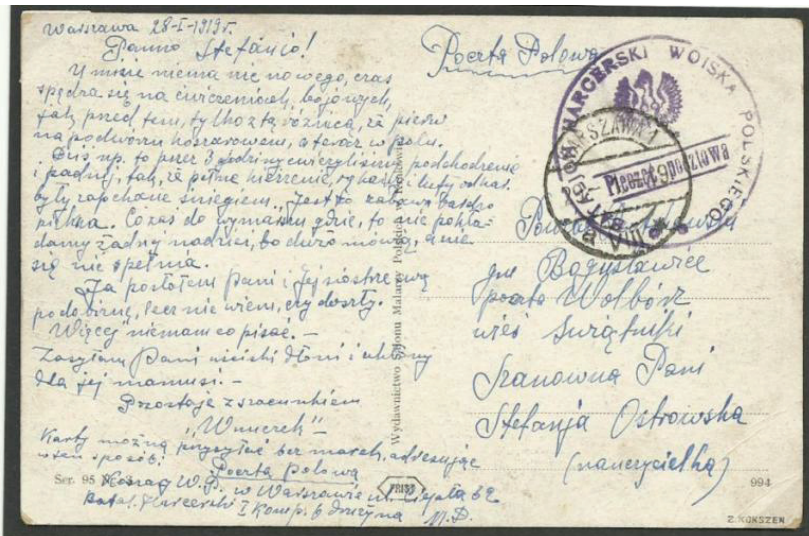 Warszawa 28-I-1919r.
Panno Stefanio!
U mnie niema nic nowego, czas
spędza się na ćwiczeniach bojowych,
jak przed tem, tylko z tą różnicą, że pierw
na podwórzu koszarowem, a teraz w polu.
Dziś np. to przez 3 godziny ćwiczyliśmy podchodzenie
i padnij, tak, że pełne kieszenie, rękawy i buty
były zapchane śniegiem. Jest to zabawa bardzo
piękna. Co zaś do wymarszu gdzie, to nie pokła-
damy żadnej nadziei, bo dużo mówią, a nic
się nie spełnia.
Ja posłałem Pani i Jej siostrze swą
podobiznę, lecz nie wiem, czy doszły.
Więcej niemam co pisać. –
Zasyłam Pani uściski dłoni i ukłony
dla jej mamusi. –
Pozostaję z szacunkiem
Karty można przysyłać bez marek, adresując
w ten sposób:
Poczta Polowa
W.P. w Warszawie ul. Ciepła 32
Batal. Harcerski I Komp. 6 drużyna M.D.
Ser. 95 N.
Wydawnictwo Salonu Malarzy Polskich w Krakowie
Poczta Polowa
BATALJON HARCERSKI WOJSKA POLSKIEGO
WARSZAWA 1
Pieczęć pocztowa
Powiat
gm Bogusławice
poczta Wolbórz
wieś Swiątniki
Szanowna Pani
Stefanja Ostrowska
(nauczycielka)
994
Z.KOKSZEN